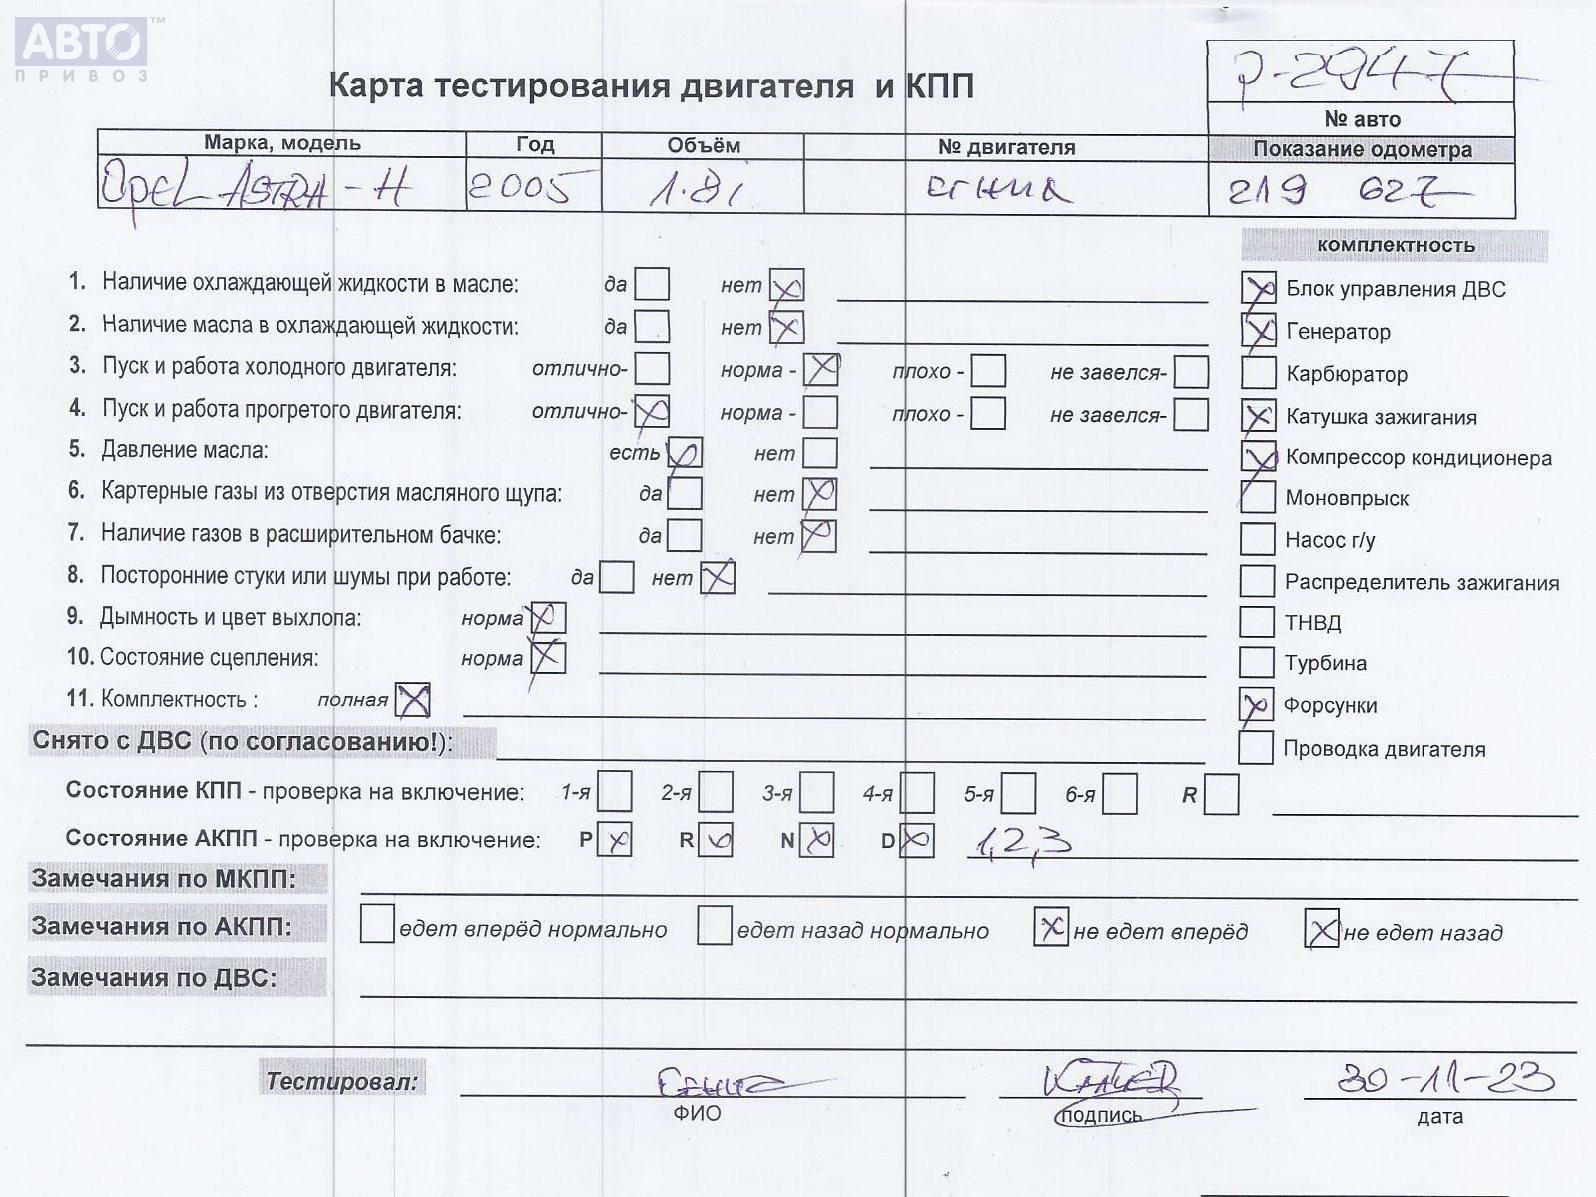 АВТО™
ПРИВОЗ
Карта тестирования двигателя и КПП
P-2947
№ авто
Марка, модель Год Объём № двигателя Показание одометра
Opel ASTRA-H 2005 1.8i 219 627
комплектность
1. Наличие охлаждающей жидкости в масле: да нет
Блок управления ДВС
2. Наличие масла в охлаждающей жидкости: да нет
Генератор
3. Пуск и работа холодного двигателя: отлично- норма - плохо - не завелся-
Карбюратор
4. Пуск и работа прогретого двигателя: отлично- норма - плохо - не завелся-
Катушка зажигания
5. Давление масла: есть нет
Компрессор кондиционера
6. Картерные газы из отверстия масляного щупа: да нет
Моновпрыск
7. Наличие газов в расширительном бачке: да нет
Насос г/у
8. Посторонние стуки или шумы при работе: да нет
Распределитель зажигания
9. Дымность и цвет выхлопа: норма
ТНВД
10. Состояние сцепления: норма
Турбина
11. Комплектность : полная
Форсунки
Снято с ДВС (по согласованию!):
Проводка двигателя
Состояние КПП - проверка на включение: 1-я 2-я 3-я 4-я 5-я 6-я R
Состояние АКПП - проверка на включение: P R N D 1,2,3
Замечания по МКПП:
Замечания по АКПП: едет вперёд нормально едет назад нормально не едет вперёд не едет назад
Замечания по ДВС:
Тестировал: 30-11-23
ФИО подпись дата